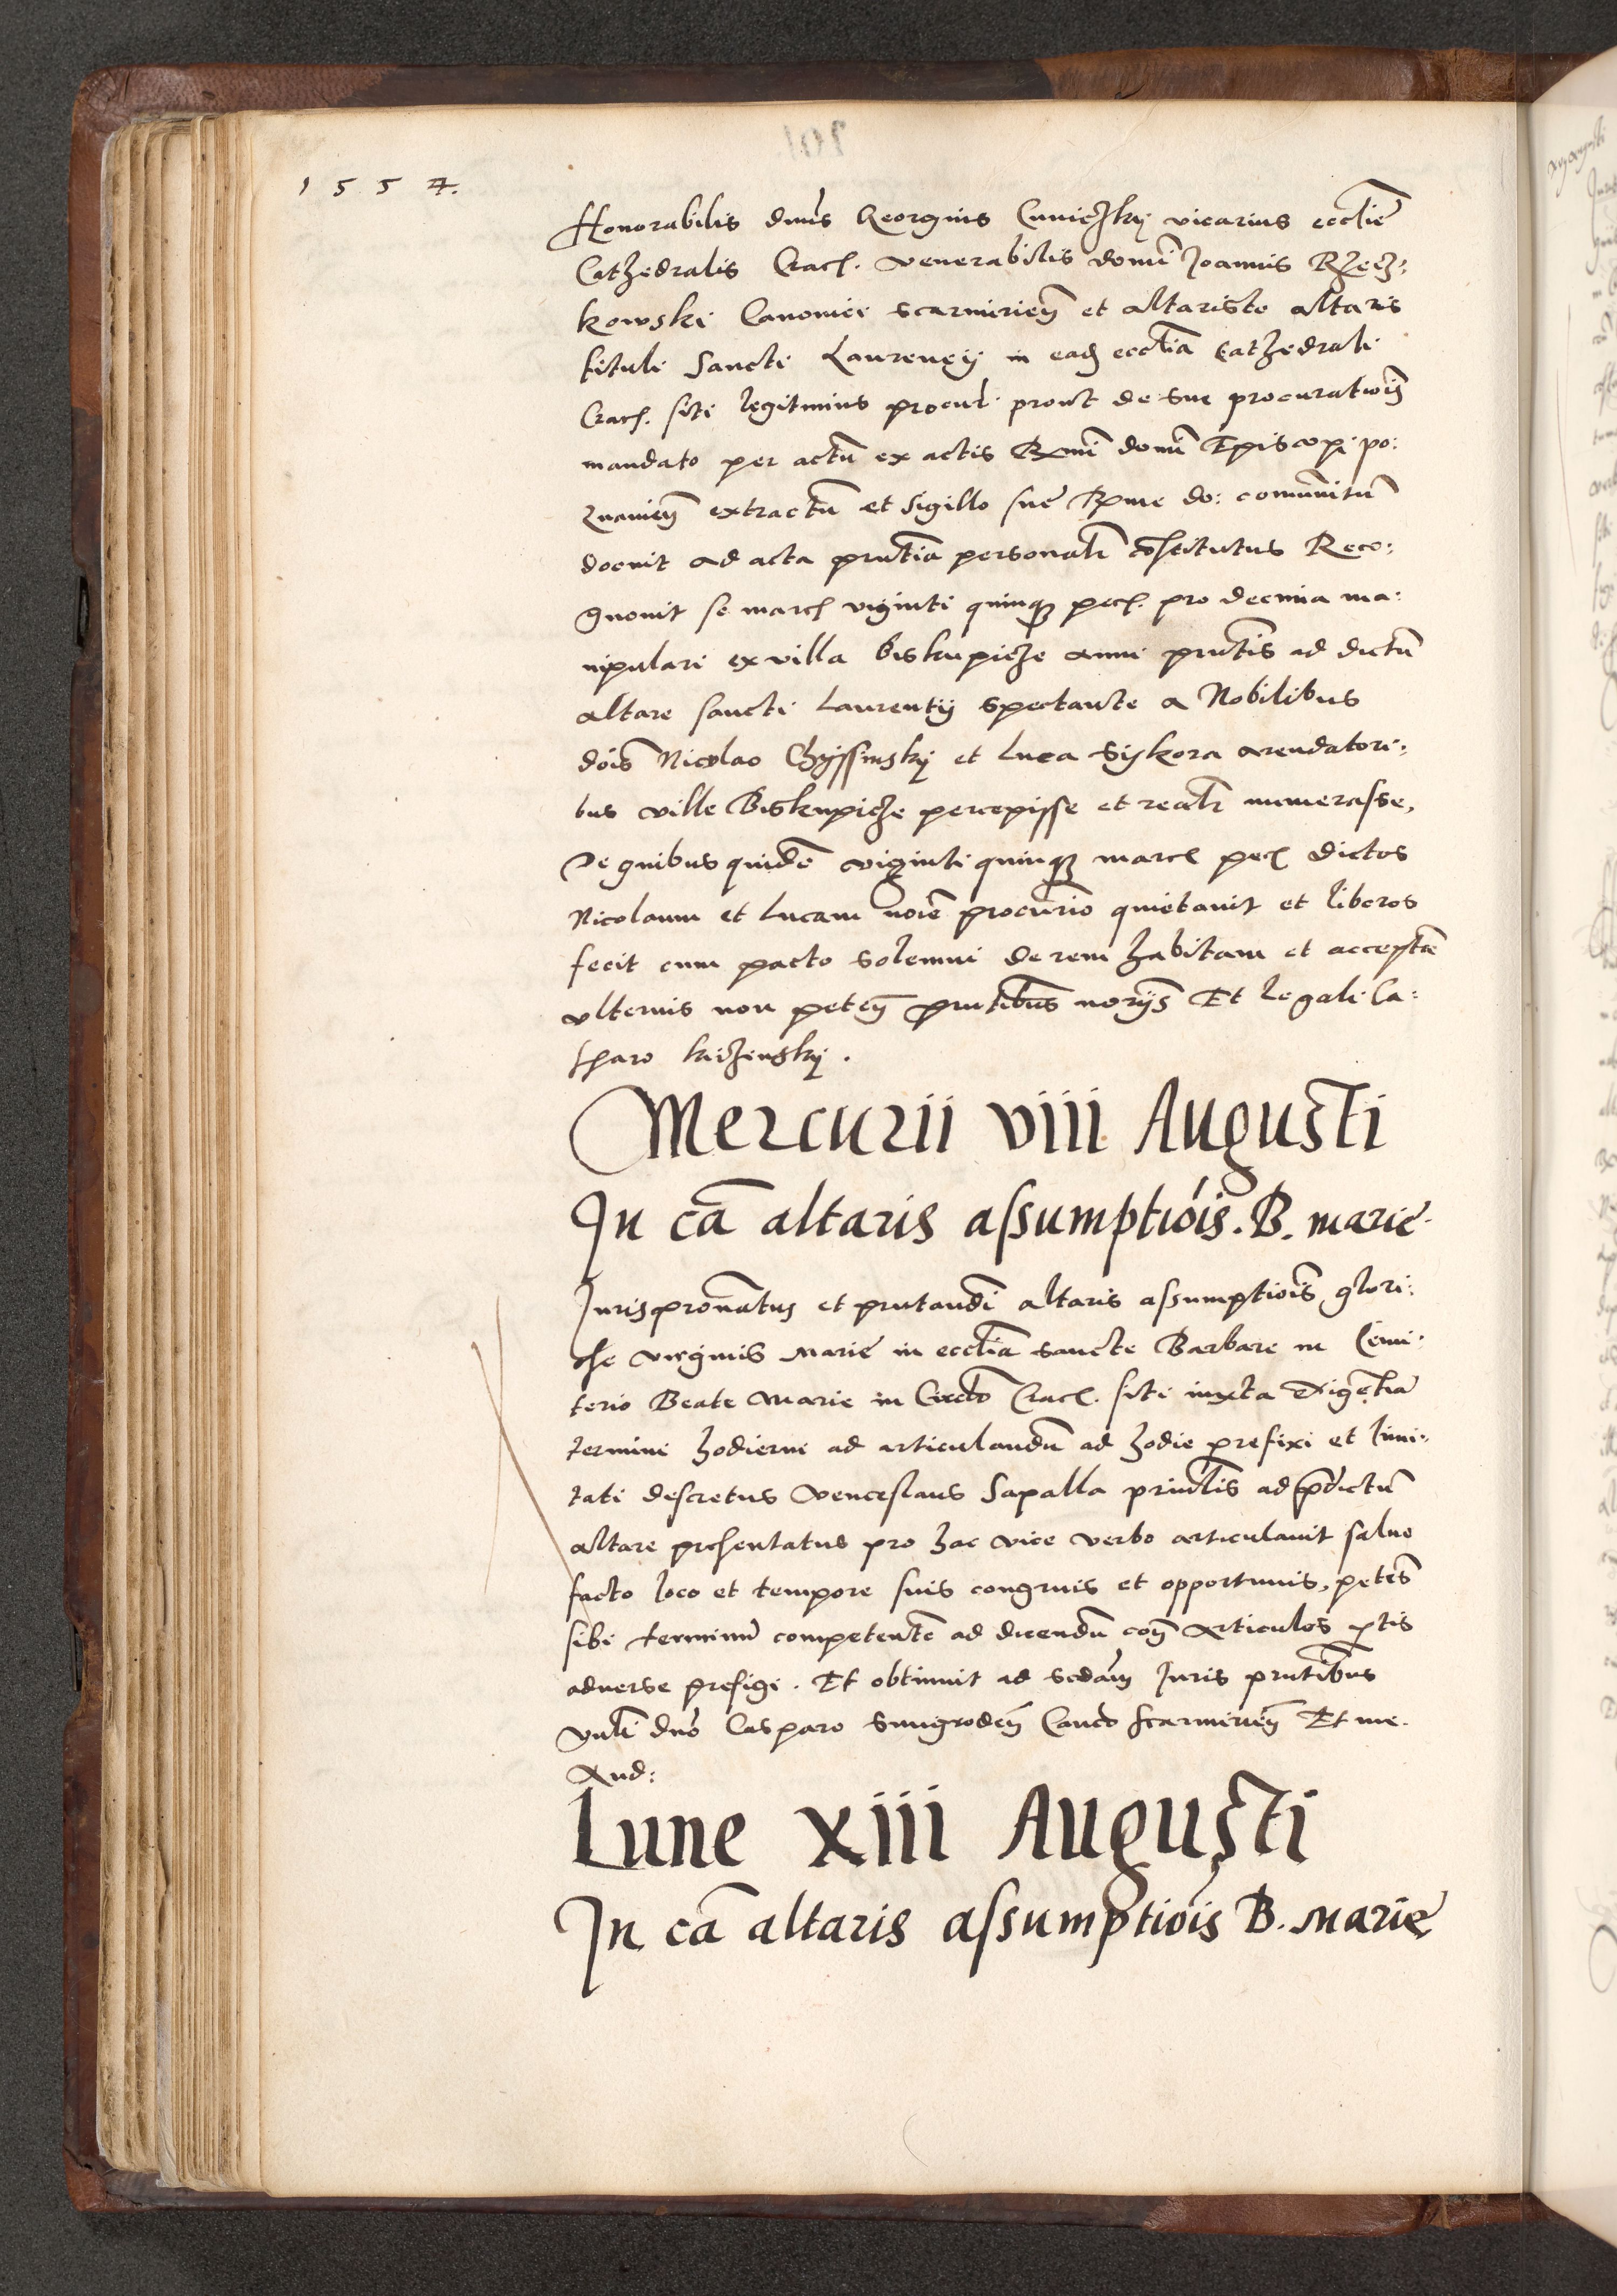 1554.
Honorabilis dnus Georgius Cunieczky vicarius ecclie
Cathedralis Crac. venerabilis domi Joannis Rzecz:
kowski Canonici scarmirien et altariste altaris
tituli Sancti Laurencij in ead ecclia Cathedrali
Crac. siti legitimus procur: prout de sue procurationis
mandato per actu ex actis Rmi domi Episcopi po:
znanien extractu et Sigillo sue Rme do: comunitu
docuit ad acta pntia personalr costitutus Reco:
gnovit se marc viginti quinq pec. pro decima ma:
nipulari ex villa biskupicze anni pntis ad dictu
altare sancti Laurentij spectante a Nobilibus
dois Nicolao et Luca Sijkora arendatori:
bus ville Biskupicze percepisse et realr numerasse,
De quibus quide viginti quinq marc pec dictos
Nicolaum et Lucam noie procurio quietavit et liberos
fecit cum pacto solemni de rem habitam et acceptam
ulterius non peten pntibus norijs Et legali Ca:
sparo kiczenskij.
Mercurii viii Augusti
In ca altaris assumptiois. B. marie
Jurispronatus et pntandi altaris assumptiois glori:
ose virginis Marie in ecclia sancte Barbare in Cemi:
terio Beate Marie in Circulo Crac. siti iuxta exigentia
termini hodierni ad articulandu ad hodie prefixi et limi:
tati descretus Venceslaus Sapalla principlis ad pdictu
altare presentatus pro hac vice verbo articulavit salvo
facto loco et tempore suis congruis et opportunis, petes
sibi terminu competente ad dicendu con articulos ptis
adverse prefigi. Et obtinuit ad scdam Juris pntibus
Vnli dno Casparo Canco scarmirien Et me.
And:
Lune xiii Augusti
In ca altaris assumptiois B. Marie